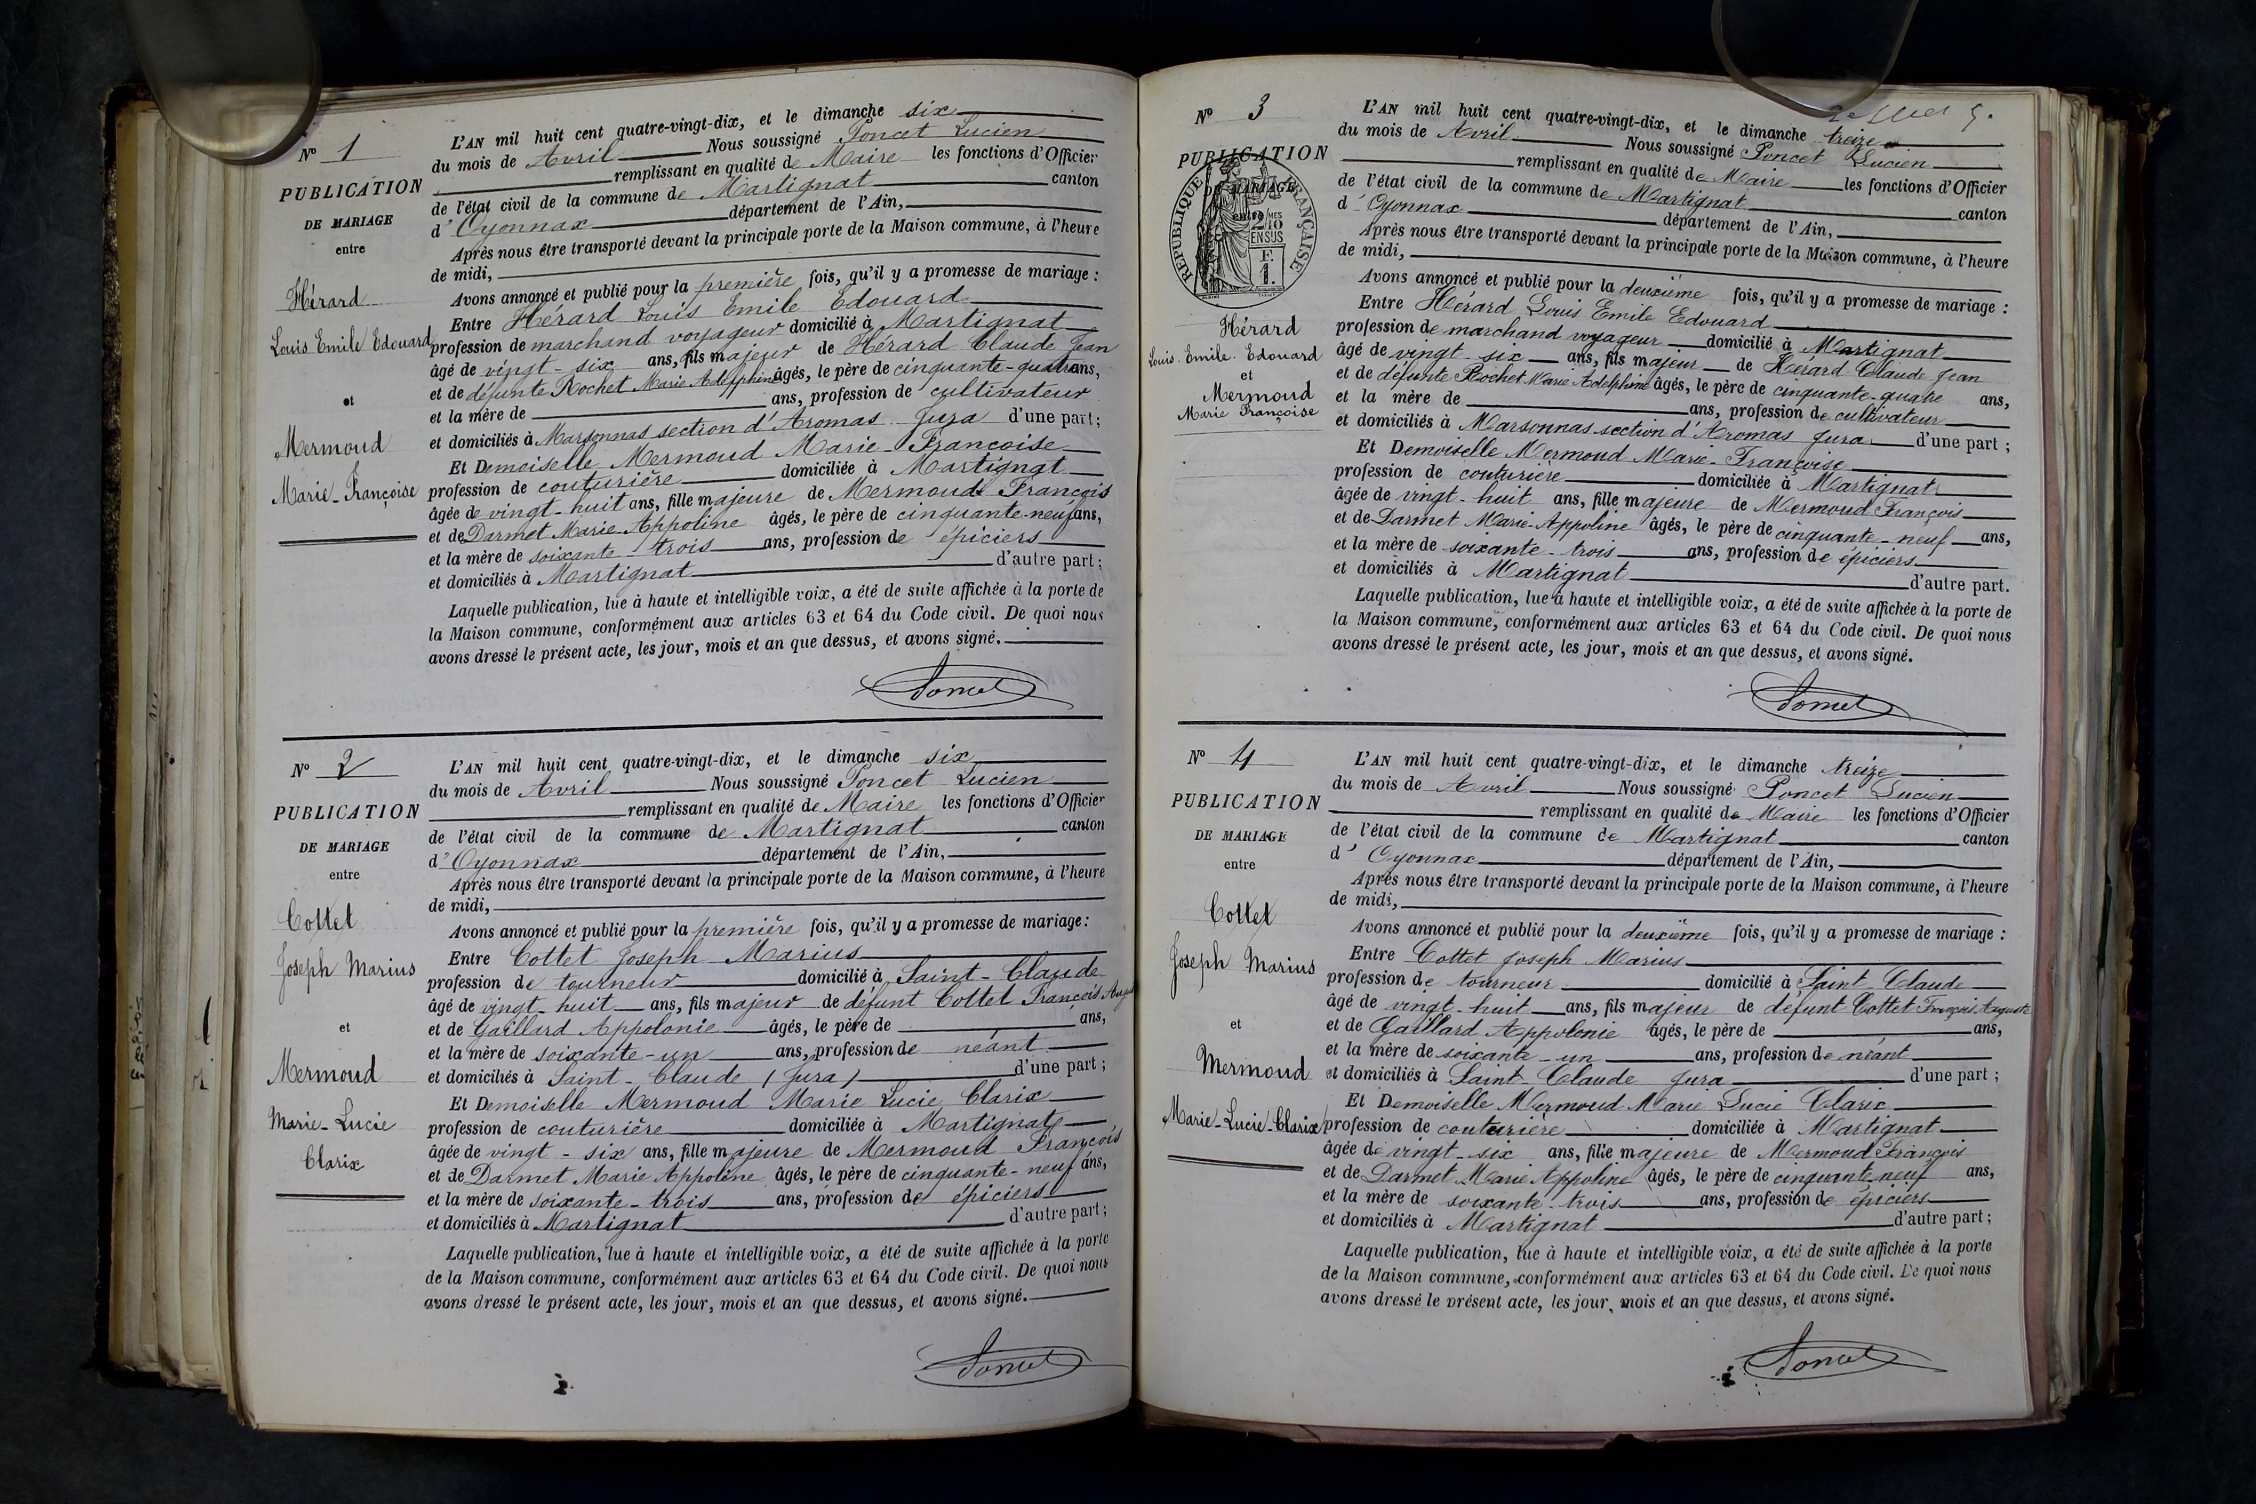 N° 1
PUBLICATION
DE MARIAGE
entre
Hérard
Louis Emile Edouard
et
Mermoud
Marie-Françoise
L'AN mil huit cent quatre-vingt-dix, et le dimanche six
du mois de Avril Nous soussigné Poncet Lucien
remplissant en qualité de Maire les fonctions d'Officier
de l'état civil de la commune de Martignat canton
d'Oyonnax département de l'Ain,
Après nous être transporté devant la principale porte de la Maison commune, à l'heure
de midi,
Avons annoncé et publié pour la première fois, qu'il y a promesse de mariage :
Entre Hérard Louis Emile Edouard
profession de marchand voyageur domicilié à Martignat
âgé de vingt-six ans, fils majeur de Hérard Claude Jean
et de défunte Rochet Marie Adelphine âgés, le père de cinquante-quatre ans,
et la mère de ans, profession de cultivateur
et domiciliés à Marsonnas section d'Aromas Jura d'une part;
Et Demoiselle Mermoud Marie-Françoise
profession de couturière domiciliée à Martignat
âgée de vingt-huit ans, fille majeure de Mermoud François
et de Darmet Marie Appoline âgés, le père de cinquante-neuf ans,
et la mère de soixante-trois ans, profession de épiciers
et domiciliés à Martignat d'autre part;
Laquelle publication, lue à haute et intelligible voix, a été de suite affichée à la porte de
la Maison commune, conformément aux articles 63 et 64 du Code civil. De quoi nous
avons dressé le présent acte, les jour, mois et an que dessus, et avons signé.
Poncet
N° 2
PUBLICATION
DE MARIAGE
entre
Cottet
Joseph Marius
et
Mermoud
Marie-Lucie
Clarix
L'AN mil huit cent quatre-vingt-dix, et le dimanche six
du mois de Avril Nous soussigné Poncet Lucien
remplissant en qualité de Maire les fonctions d'Officier
de l'état civil de la commune de Martignat canton
d'Oyonnax département de l'Ain,
Après nous être transporté devant la principale porte de la Maison commune, à l'heure
de midi,
Avons annoncé et publié pour la première fois, qu'il y a promesse de mariage :
Entre Cottet Joseph Marius
profession de tourneur domicilié à Saint-Claude
âgé de vingt-huit ans, fils majeur de défunt Cottet François
et de Gaillard Appolonie âgés, le père de ans,
et la mère de soixante-un ans, profession de néant
et domiciliés à Saint-Claude (Jura) d'une part ;
Et Demoiselle Mermoud Marie Lucie Clarix
profession de couturière domiciliée à Martignat
âgée de vingt-six ans, fille majeure de Mermoud François
et de Darmet Marie Appoline âgés, le père de cinquante-neuf ans,
et la mère de soixante-trois ans, profession de épiciers
et domiciliés à Martignat d'autre part;
Laquelle publication, lue à haute et intelligible voix, a été de suite affichée à la porte
de la Maison commune, conformément aux articles 63 et 64 du Code civil. De quoi nous
avons dressé le présent acte, les jour, mois et an que dessus, et avons signé.
Poncet
N° 3
PUBLICATION
DE MARIAGE
entre
RÉPUBLIQUE FRANÇAISE
2/10
EN SUS
F.
1.
Hérard
Louis. Emile. Edouard
et
Mermoud
Marie Françoise
L'AN mil huit cent quatre-vingt-dix, et le dimanche treize
du mois de Avril Nous soussigné Poncet Lucien
remplissant en qualité de Maire les fonctions d'Officier
de l'état civil de la commune de Martignat canton
d'Oyonnax département de l'Ain,
Après nous être transporté devant la principale porte de la Maison commune, à l'heure
de midi,
Avons annoncé et publié pour la deuxième fois, qu'il y a promesse de mariage :
Entre Hérard Louis Emile Edouard
profession de marchand voyageur domicilié à Martignat
âgé de vingt-six ans, fils majeur de Hérard Claude Jean
et de défunte Rochet Marie Adelphine âgés, le père de cinquante-quatre ans,
et la mère de ans, profession de cultivateur
et domiciliés à Marsonnas section d'Aromas Jura d'une part ;
Et Demoiselle Mermoud Marie-Françoise
profession de couturière domiciliée à Martignat
âgée de vingt-huit ans, fille majeure de Mermoud François
et de Darmet Marie-Appoline âgés, le père de cinquante-neuf ans,
et la mère de soixante-trois ans, profession de épiciers
et domiciliés à Martignat d'autre part.
Laquelle publication, lue à haute et intelligible voix, a été de suite affichée à la porte de
la Maison commune, conformément aux articles 63 et 64 du Code civil. De quoi nous
avons dressé le présent acte, les jour, mois et an que dessus, et avons signé.
Poncet
N° 4
PUBLICATION
DE MARIAGE
entre
Cottet
Joseph Marius
et
Mermoud
Marie-Lucie-Clarix
L'AN mil huit cent quatre-vingt-dix, et le dimanche treize
du mois de Avril Nous soussigné Poncet Lucien
remplissant en qualité de Maire les fonctions d'Officier
de l'état civil de la commune de Martignat canton
d'Oyonnax département de l'Ain,
Après nous être transporté devant la principale porte de la Maison commune, à l'heure
de midi,
Avons annoncé et publié pour la deuxième fois, qu'il y a promesse de mariage :
Entre Cottet Joseph Marius
profession de tourneur domicilié à Saint Claude
âgé de vingt-huit ans, fils majeur de défunt Cottet François Auguste
et de Gaillard Appolonie âgés, le père de ans,
et la mère de soixante-un ans, profession de néant
et domiciliés à Saint-Claude Jura d'une part ;
Et Demoiselle Mermoud Marie Lucie Clarix
profession de couturière domiciliée à Martignat
âgée de vingt-six ans, fille majeure de Mermoud François
et de Darmet Marie Appoline âgés, le père de cinquante-neuf ans,
et la mère de soixante-trois ans, profession de épiciers
et domiciliés à Martignat d'autre part ;
Laquelle publication, lue à haute et intelligible voix, a été de suite affichée à la porte
de la Maison commune, conformément aux articles 63 et 64 du Code civil. De quoi nous
avons dressé le présent acte, les jour, mois et an que dessus, et avons signé.
Poncet